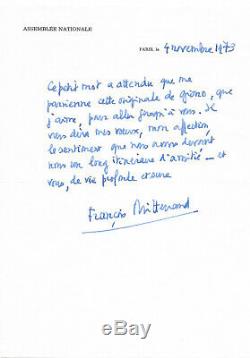 ASSEMBLÉE NATIONALE
PARIS, le 4 novembre 1973
Ce petit mot a attendu que me
parvienne cette originale de giono, que
j'aime, pour aller jusqu'à vous. Il
vous dira mes vœux, mon affection
le sentiment que nous avons devant
nous un long itinéraire d'amitié - et
vous, de vie profonde et
François Mitterrand